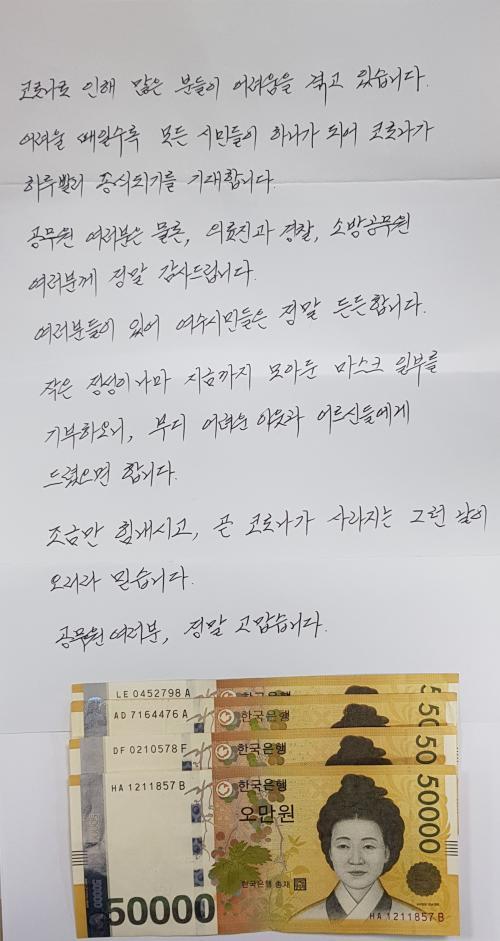 코로나로 인해 많은 분들이 어려움을 겪고 있습니다.
어려울 때일수록 모든 시민들이 하나가 되어 코로나가
하루빨리 종식되기를 기대합니다.
공무원 여러분은 물론, 의료진과 경찰, 소방공무원
여러분께 정말 감사드립니다.
여러분들이 있어 여수시민들은 정말 든든합니다.
작은 정성이나마 지금까지 모아둔 마스크 일부를
기부하오니, 부디 어려운 이웃과 어르신들에게
드렸으면 합니다.
조금만 힘내시고, 곧 코로나가 사라지는 그런 날이
오리라 믿습니다.
공무원 여러분, 정말 고맙습니다.
LE 0452798 A
5
AD 7164476 A 한국은행
50
DF 0210578 F 한국은행
50
HA 1211857 B 한국은행
오만원
50000
한국은행 총재
50000
50000
HA 1211857 B